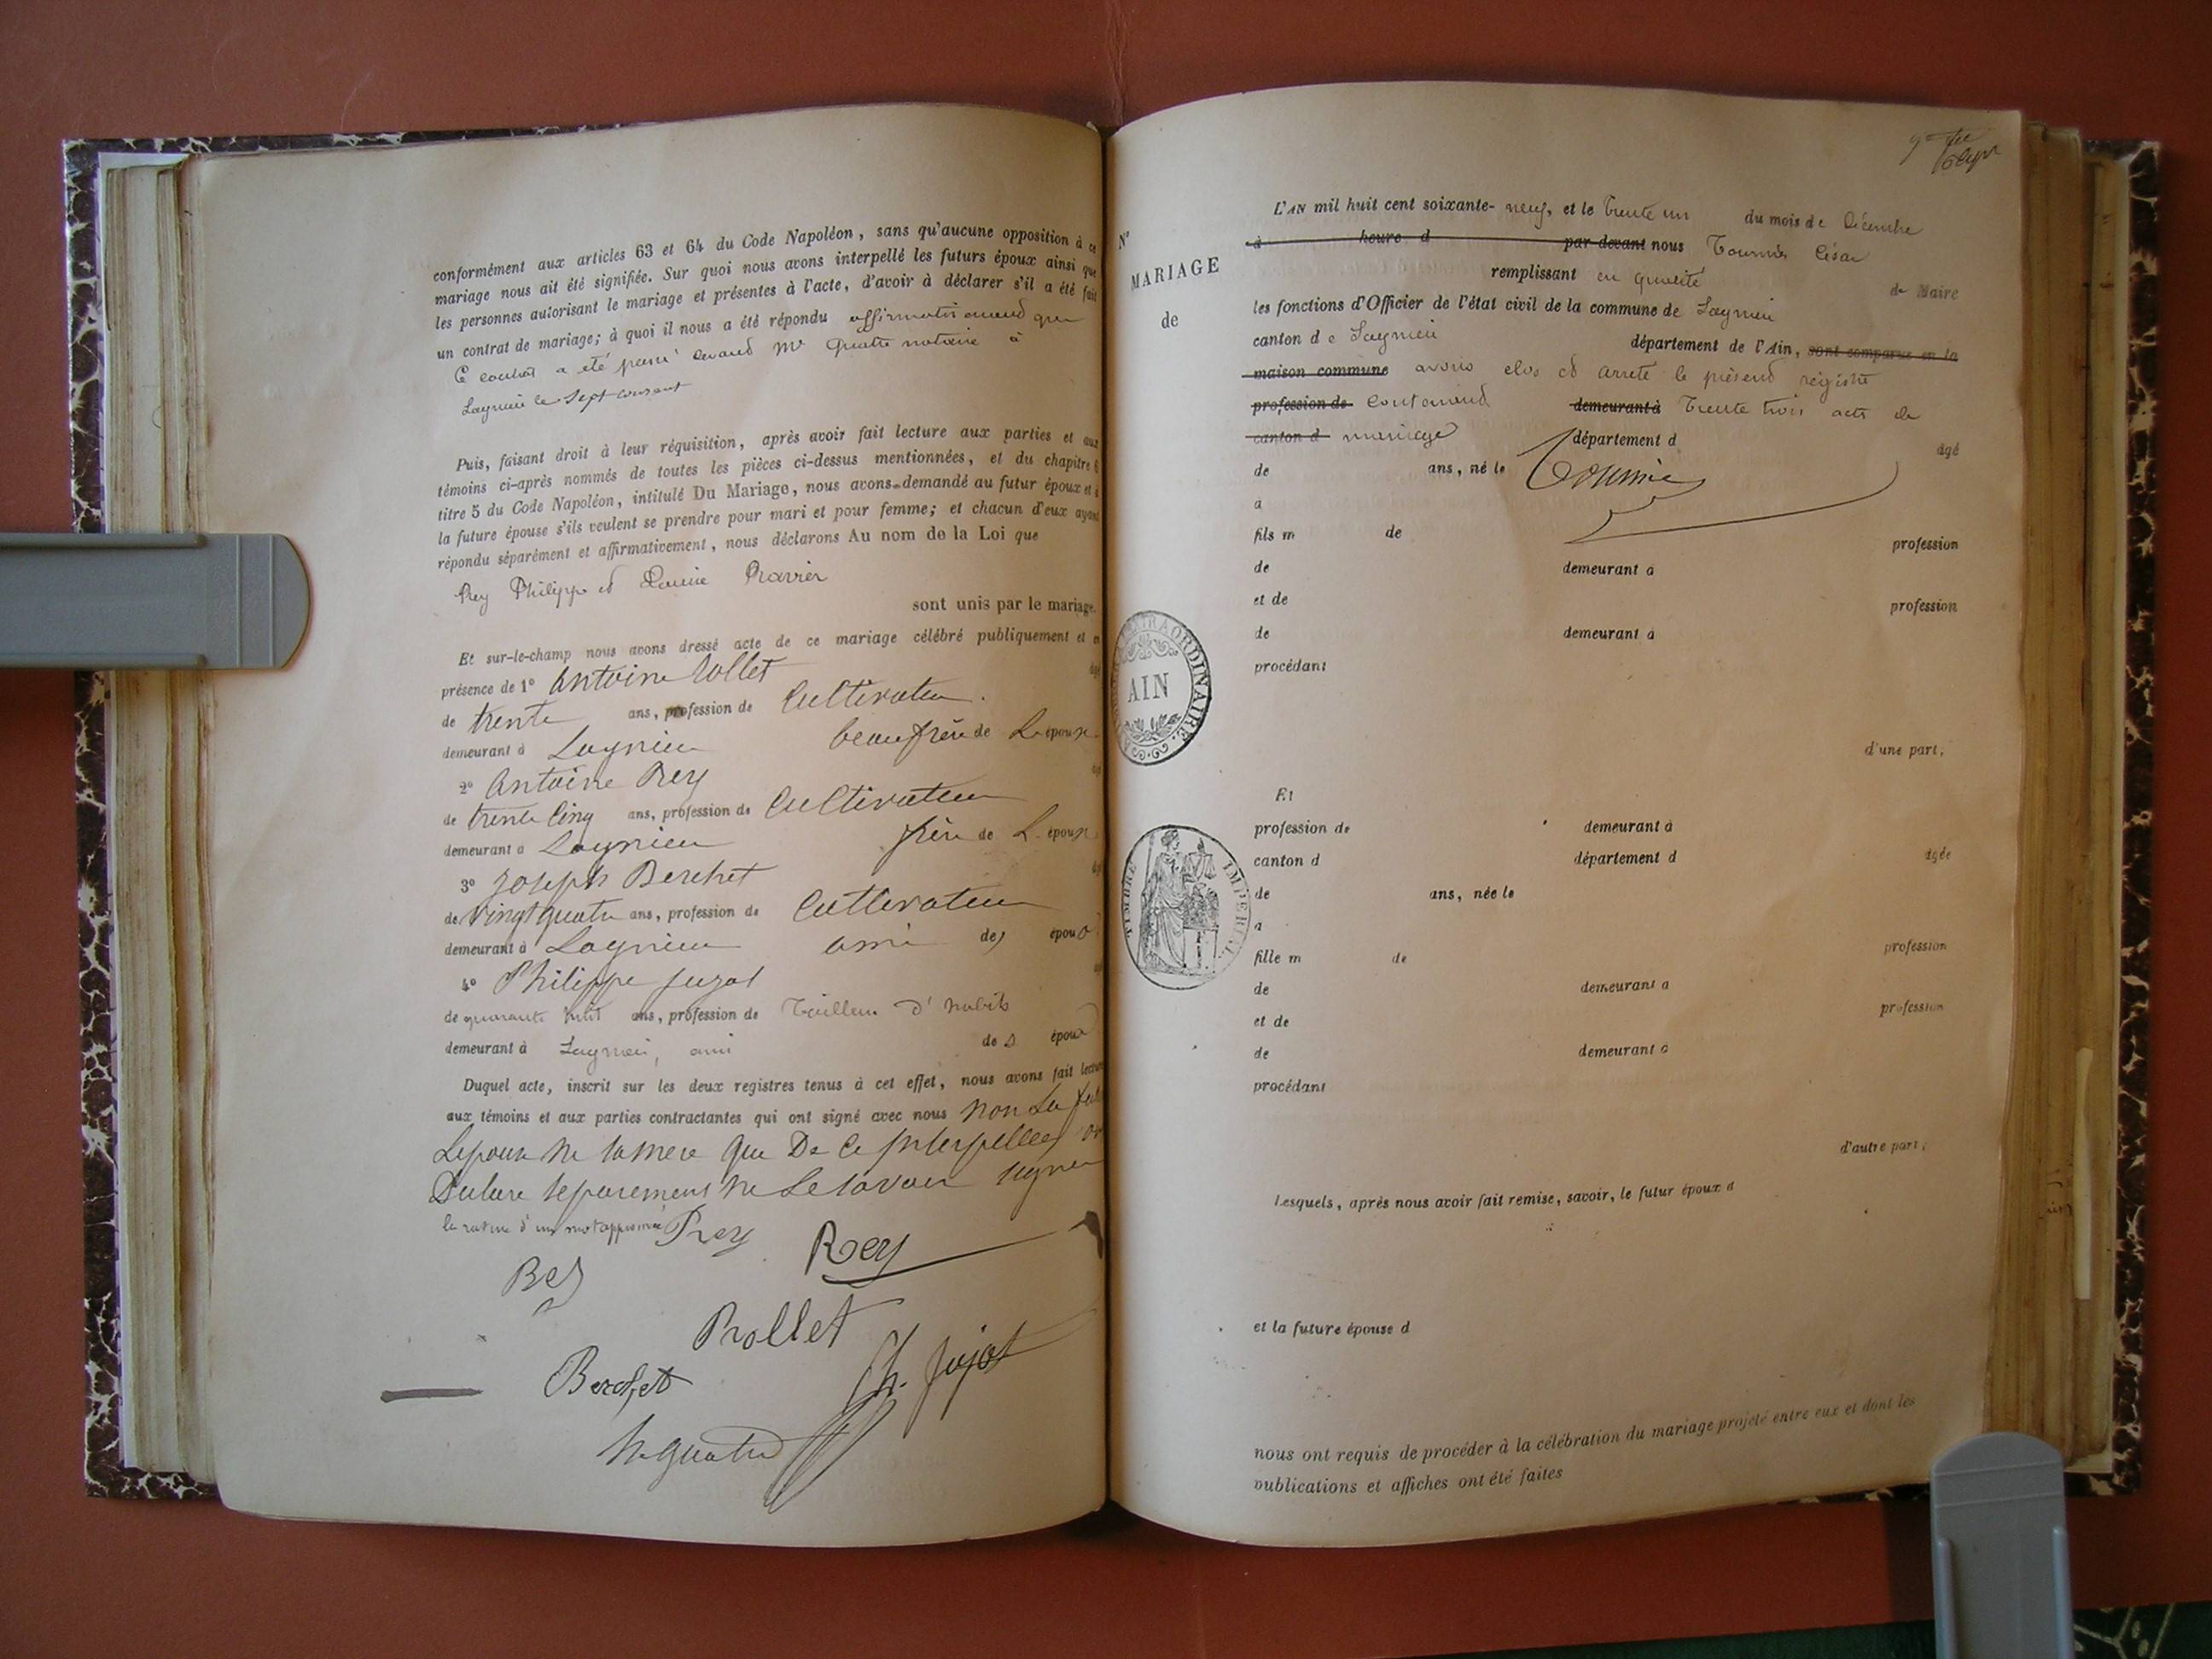 conformément aux articles 63 et 64 du Code Napoléon, sans qu'aucune opposition à ce
mariage nous ait été signifiée. Sur quoi nous avons interpellé les futurs époux ainsi que
les personnes autorisant le mariage et présentes à l'acte, d'avoir à déclarer s'il a été fait
un contrat de mariage; à quoi il nous a été répondu affirmativement que
Ce contrat a été passé devant Me Quatre notaire à
Lagnieu le Sept courant
Puis, faisant droit à leur réquisition, après avoir fait lecture aux parties et aux
témoins ci-après nommés de toutes les pièces ci-dessus mentionnées, et du chapitre 6
titre 5 du Code Napoléon, intitulé Du Mariage, nous avons demandé au futur époux et à
la future épouse s'ils veulent se prendre pour mari et pour femme; et chacun d'eux ayant
répondu séparément et affirmativement, nous déclarons Au nom de la Loi que
Rey Philippe et Louise Ravier
sont unis par le mariage.
Et sur-le-champ nous avons dressé acte de ce mariage célébré publiquement et en
présence de 1° Antoine Rollet âgé
de trente ans, profession de Cultivateur.
demeurant à Lagnieu beaufrère de L'époux
2° Antoine Rey âgé
de trente cinq ans, profession de Cultivateur
demeurant à Lagnieu frère de L'époux
3° Joseph Berchet âgé
de Vingt quatre ans, profession de Cultivateur
demeurant à Lagnieu ami des époux
4° Philippe Jujat
de quarante huit ans, profession de Tailleur d'habits
demeurant à Lagnieu, ami des époux
Duquel acte, inscrit sur les deux registres tenus à cet effet, nous avons fait lecture
aux témoins et aux parties contractantes qui ont signé avec nous non La
Lepoux ne sa mere que De ce Interpelles
Déclare séparement ne Le savoir signer
la rature d'un mot approuvée Rey
Rey
Rollet
Berchet
Ph. Jujat
N°
MARIAGE
de
L'AN mil huit cent soixante-neuf, et le trente un du mois de Décembre
à heure d par devant nous Tournier César
remplissant en qualité de Maire
les fonctions d'Officier de l'état civil de la commune de Lagnieu
canton de Lagnieu département de l'Ain, sont comparus en la
maison commune avons clos et arrêté le présent régistre
profession de contenand demeurant à Trente trois acts de
canton d mariage département d
âgé
de ans, né le Tournier
à
fils m de profession
de demeurant à
et de profession
de demeurant à
procédant
EXTRAORDINAIRE
AIN
d'une part,
Et
profession de demeurant à
canton d département d âgée
TIMBRE IMPERIAL
de ans, née le
à
fille m de profession
de demeurant à
et de profession
de demeurant à
procédant
d'autre part;
Lesquels, après nous avoir fait remise, savoir, le futur époux d
et la future épouse d
nous ont requis de procéder à la célébration du mariage projeté entre eux et dont les
publications et affiches ont été faites